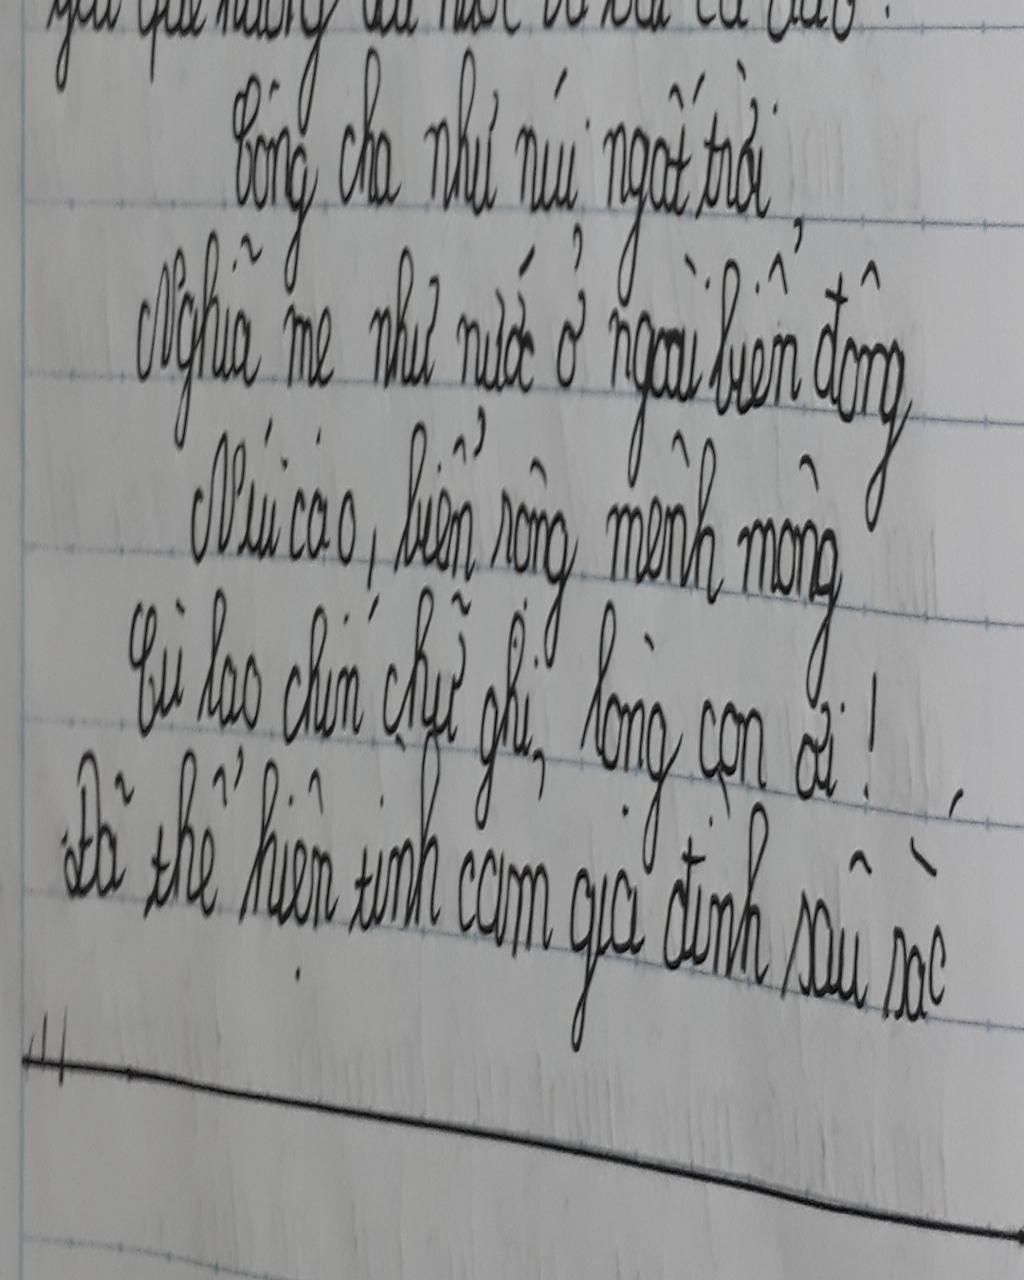 yêu quê hương đất nước và bài ca dao:
Công cha như núi ngất trời,
Nghĩa mẹ như nước ở ngoài biển đông
Núi cao, biển rộng mênh mông
Cù lao chín chữ ghi lòng con ơi!
Đã thể hiện tình cảm gia đình sâu sắc